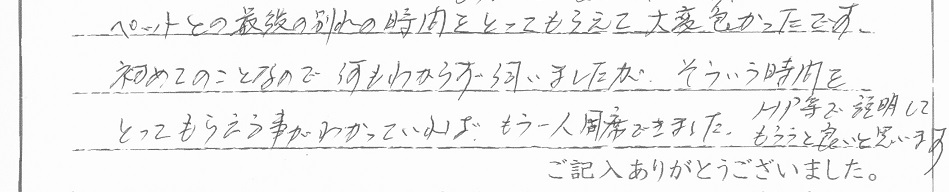 ペットとの最後の別れの時間をとってもらえて大変良かったです。
初めてのことなので何もわからず伺いましたが、そういう時間を
とってもらえる事がわかっていれば、もう一人同席できました。
HP等で説明して
もらうと良いと思います
ご記入ありがとうございました。